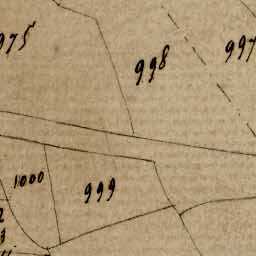 975
998
997
1000
999
2
3